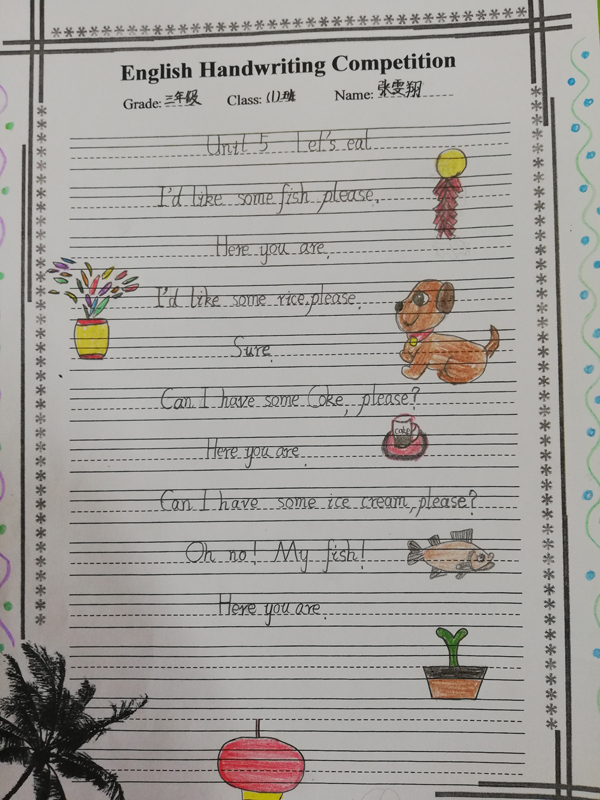 English Handwriting Competition
Grade: 三年级 Class: (1)班 Name: 张雯翔
Unit 5 Let's eat
I'd like some fish please.
Here you are.
I'd like some rice,please.
Sure.
Can I have some Coke, please?
Here you are.
coke
Can I have some ice cream,please?
Oh no! My fish!
Here you are.